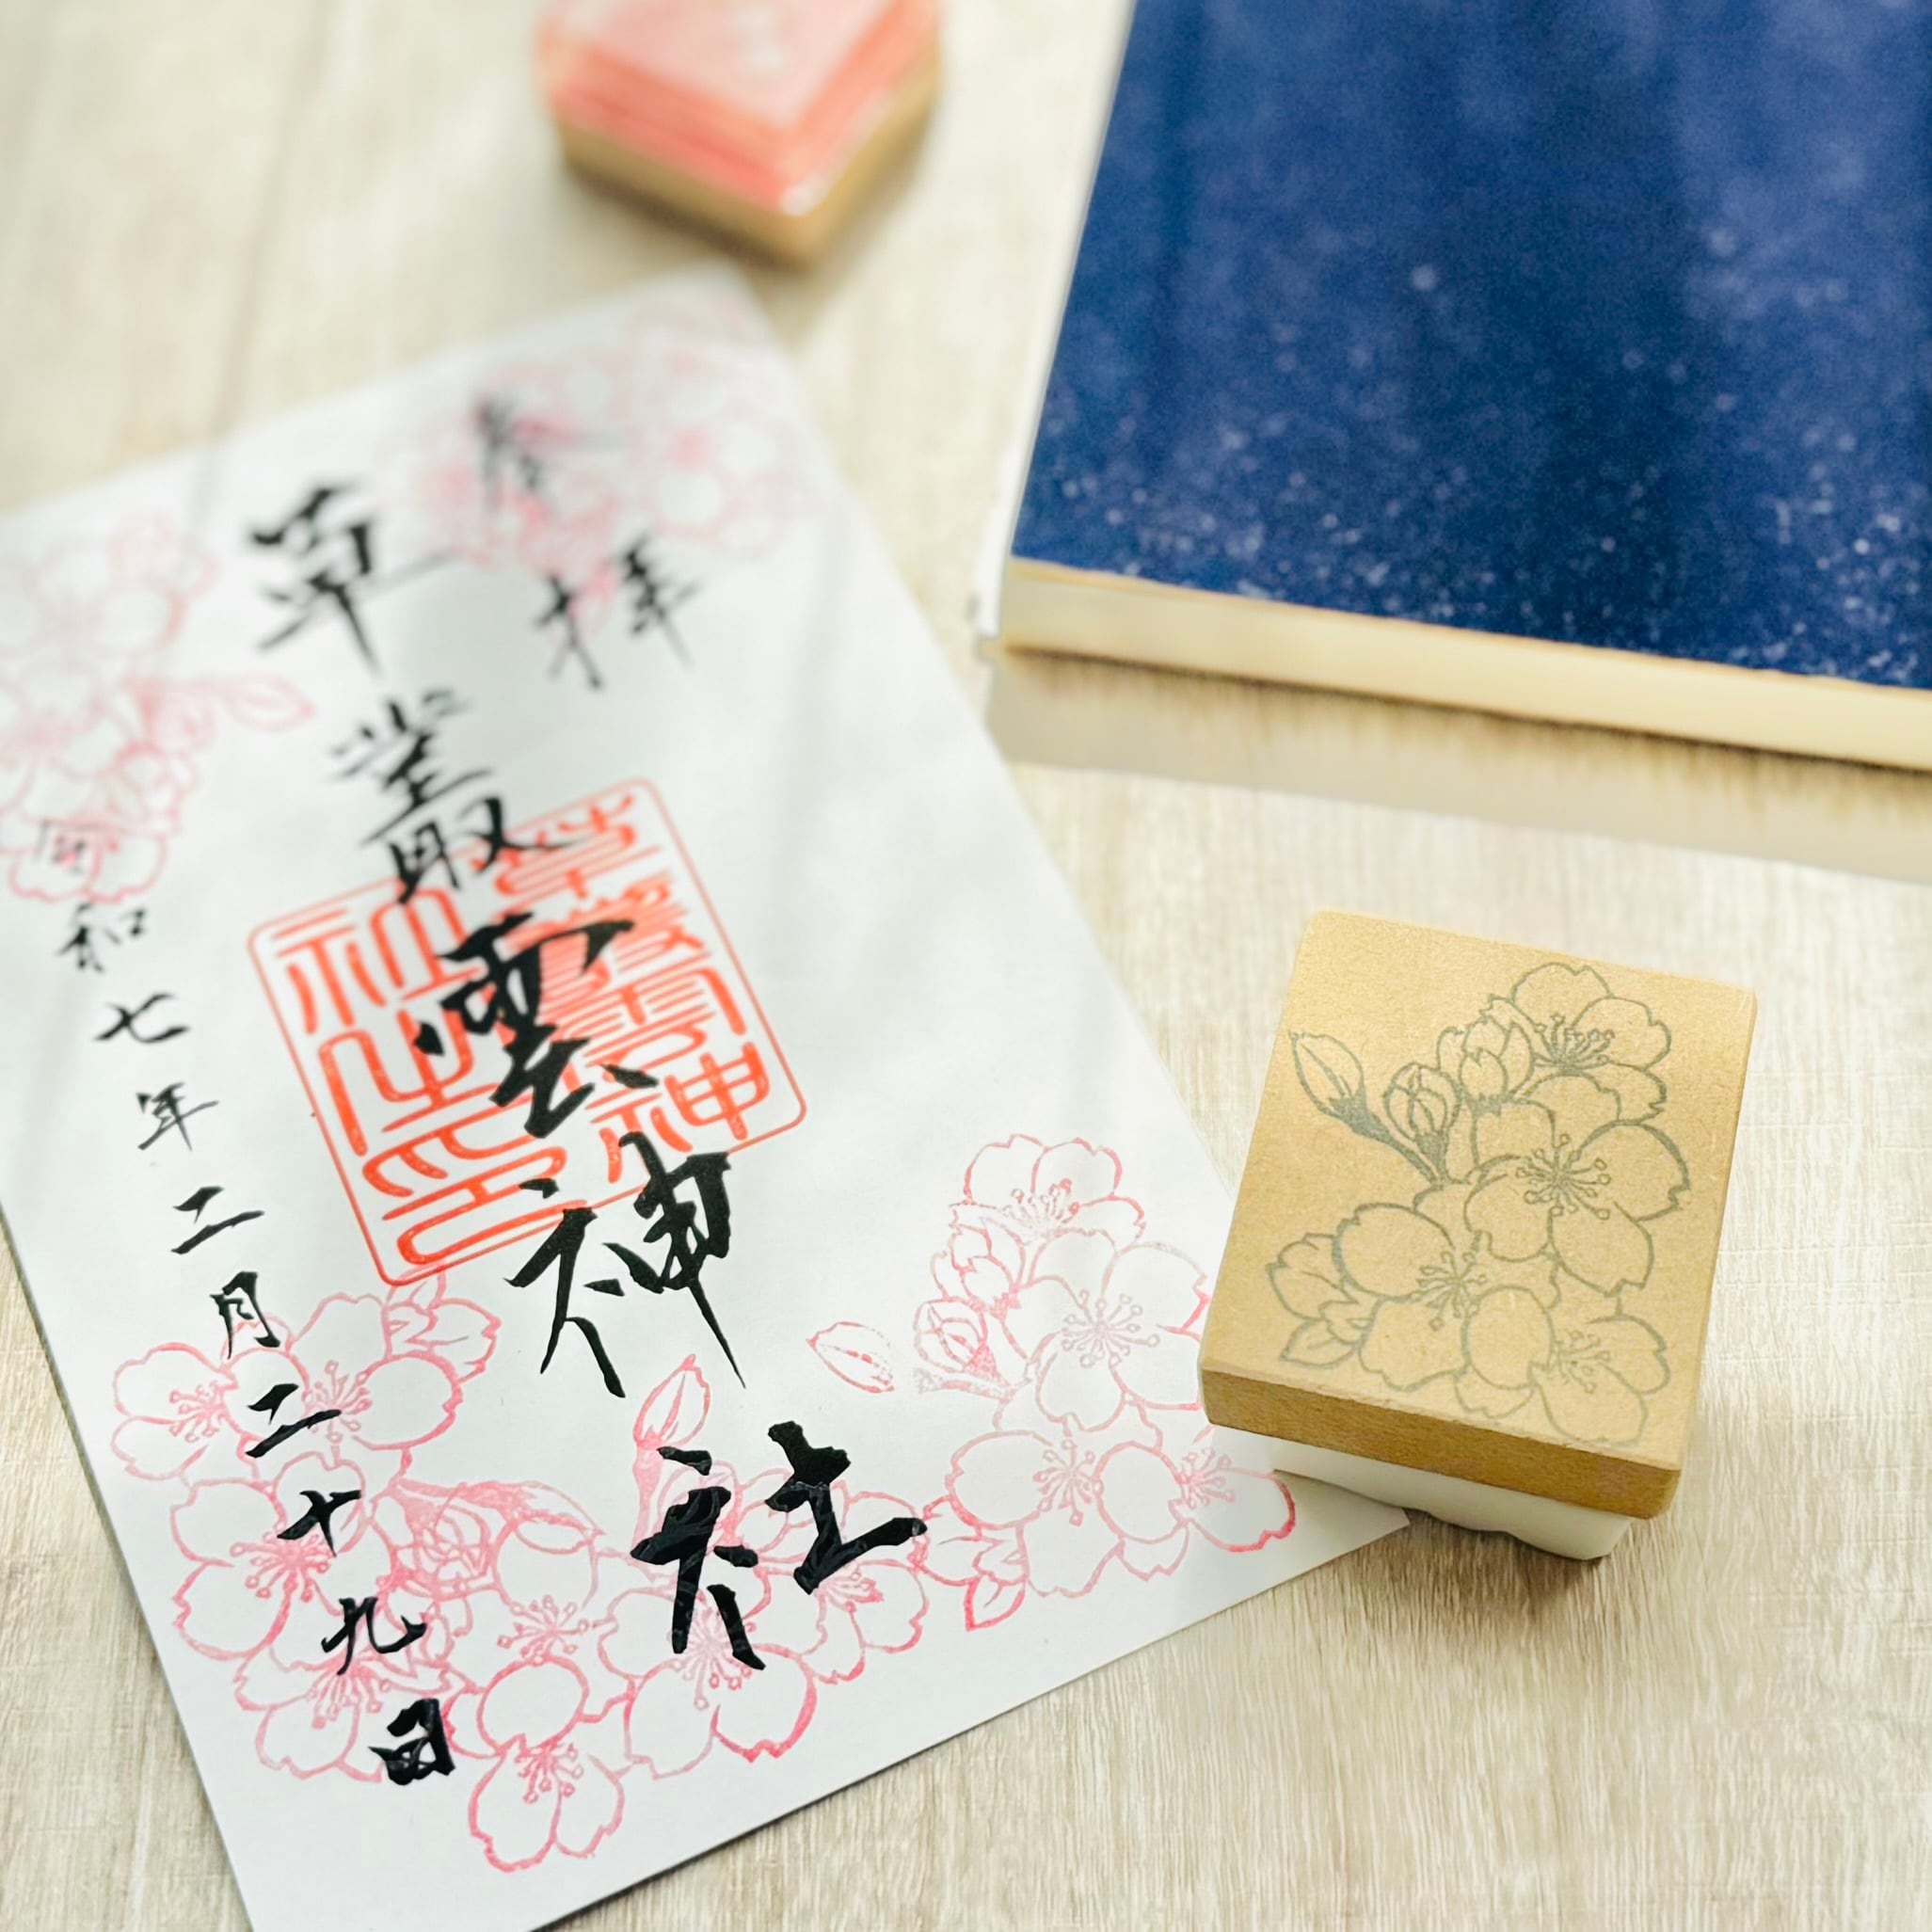 奉拝
草叢雲神社
草叢雲神
社之印
令和七年二月二十九日